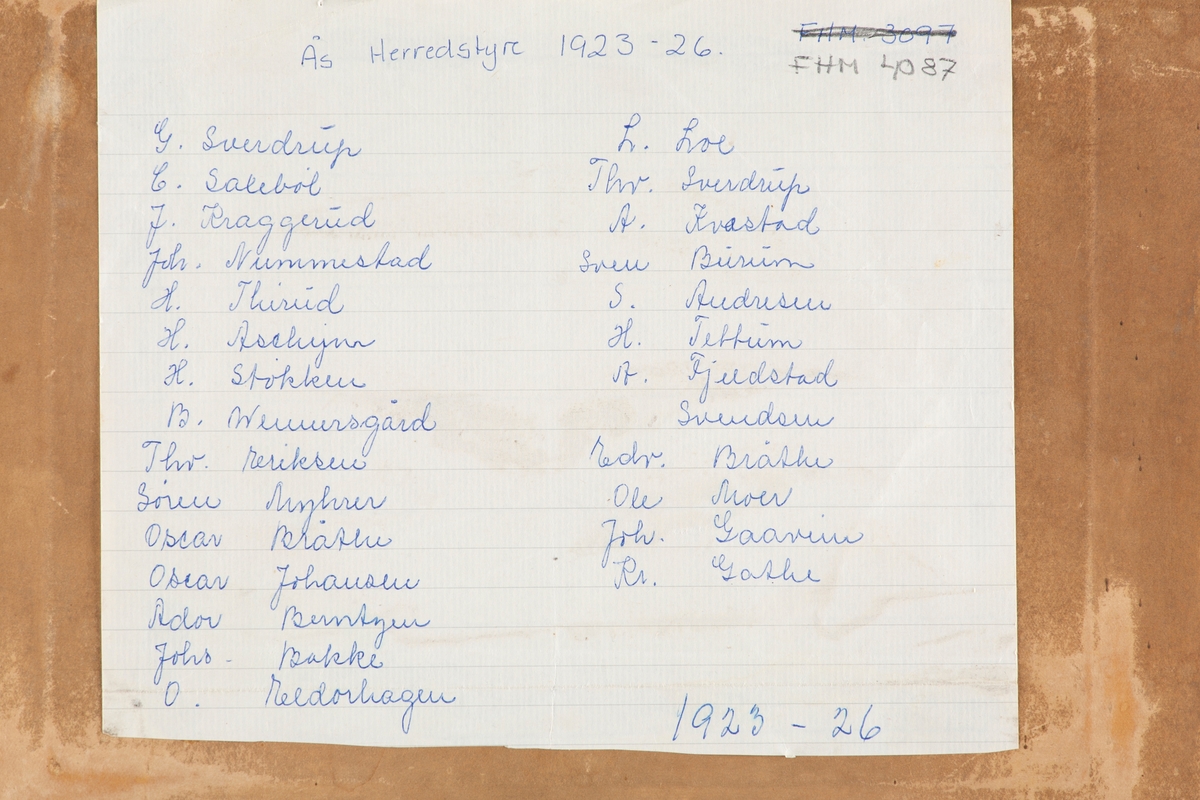 Ås Herredstyre 1923-26.
FHM 3097
FHM 4087
G. Sverdrup
C. Saleböl
J. Kraggerud
Joh. Nummestad
H. Thirud
H. Aschjem
H. Stökken
B. Wennersgård
Thv. Eriksen
Sören Myhrer
Oscar Bråthe
Oscar Johansen
Ador Berntzen
Johs- Bakke
O. Eldorhagen
L. Loe
Thv. Sverdrup
A. Kvestad
Sven Burum
S. Andresen
H. Tettum
A. Fjeldstad
Svendsen
Edv. Bråthe
Ole Moer
Joh. Gaarum
Kr. Gathe
1923 - 26